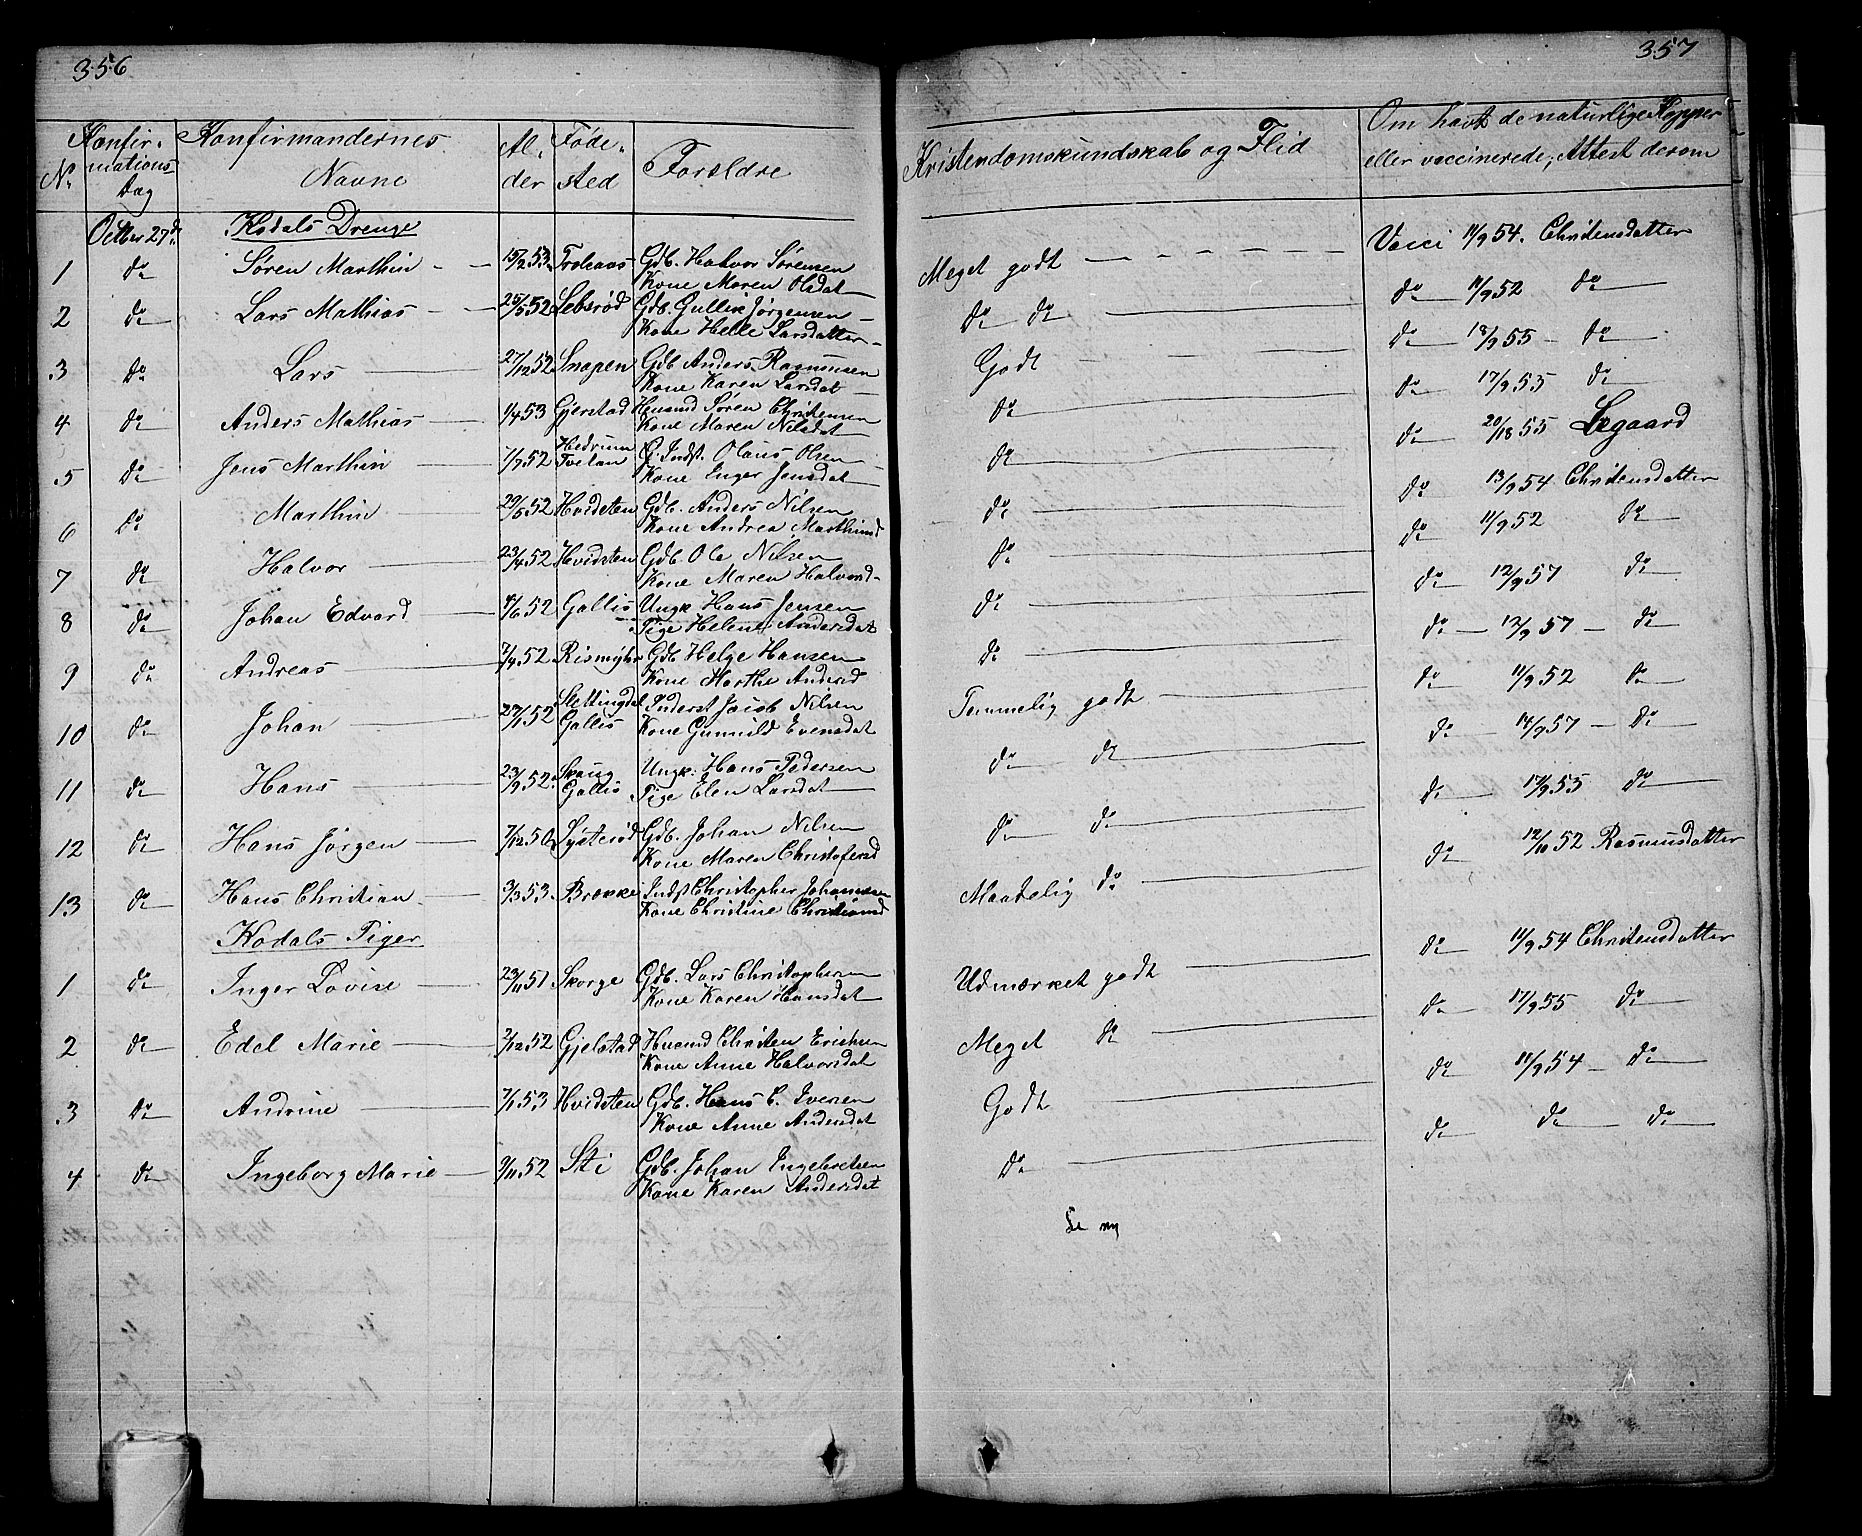 356
Konfirmations Dag
No
Konfirmandernes Navne
Alder
Fødested
Forældre
Octber 27d.
Kodals Drenge
1 do Søren Marthin 15/2 53. Trolsaas Gdb. Halvor Sørensen
Kone Maren Olsdat
2 do Lars Mathias 25/5 52 Lebsrød Gdb. Gullik Jørgensen
Kone Helle Larsdatter
3 do Lars 27/12 52 Snapen Gdb Anders Rasmussen
Kone Karen Larsdat
4 do Anders Mathias 1/4 53 Gjerstad Husmd Søren Christensen
Kone Maren Nilsdat
5 do Jens Marthin 1/7 52 Hedrum Tvetan G. Indst. Olaus Olsen
Kone Inger Jensdat
6 do Marthin 29/5 52 Hvidsten Gdb. Anders Nilsen
Kone Andrea Marthinsd
7 do Halvor 23/4 52 Hvidsten Gdb Ole Nilsen
Kone Maren Halvorsd
8 do Johan Edvard 4/6 52 Gallis Ungk Hans Jensen
Pige Helene Andersdat
9 do Andreas 7/4 52 Rismyhr Gdb Helge Hansen
Kone Marthe Andersd
10 do Johan 27/1 52 Slettingdal Gallis Inderst Jacob Nilsen
Kone Gunnild Evensdat
11 do Hans 23/9 52. Skaug Gallis Ungk: Hans Pedersen
Pige Elen Larsdat
12 do Hans Jørgen 7/12 50 Lysterød Gdb. Johan Nilsen
Kone Maren Christofersd
13 do Hans Christian 3/3 53. Brække Indst Christopher Johannesen
Kone Christine Christiansd
Kodals Piger
1 do Inger Lovise 23/11 51 Skorge Gdb. Lars Christophersen
Kone Karen Hansdat
2 do Edel Marie 2/12 52 Gjelstad Husmd Christen Erichsen
Kone Anne Halvorsdat
3 do Andrine 7/1 53 Hvidsten Gdb. Hans C. Iversen
Kone Anne Andersdat
4 do Ingeborg Marie 9/11 52 Sti Gdb. Johan Ingebretsen
Kone Karen Andersdat
357
Kristendomskundskab og Flid
Om havt de naturlige Kopper
eller vaccinerede, Attest derom
Meget godt Vacci 11/9 54. Christensdatter
do do do 11/9 52 do
Godt do 18/9 55 do
do do 17/9 55 do
do do 55 Søgaard
do do 13/9 54 Christensdatter
do do 11/9 52 do
do do 12/9 57 do
do do 12/9 57 do
Temmelig godt do 11/9 52 do
do do do 14/9 57 do
do do do 17/9 55 do
Maadelig do do 12/10 52 Rasmusdatter
Udmærket godt do 11/9 54 Christensdatter
Meget do do 17/9 55 do
Godt do 11/9 54 do
do do do do